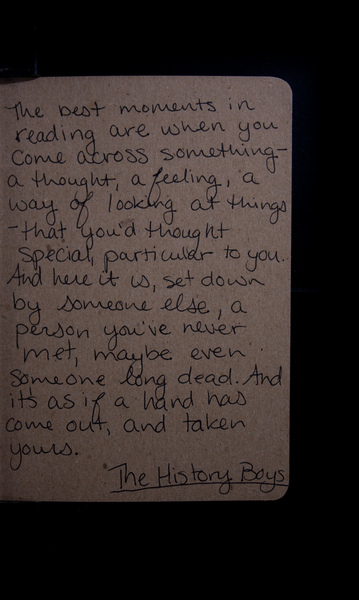 The best moments in
reading are when you
come across something-
a thought, a feeling, a
way of looking at things
-that you'd thought
special, particular to you.
And here it is, set down
by someone else, a
person you've never
met, maybe even
someone long dead. And
its as if a hand has
come out, and taken
yours.
The History Boys